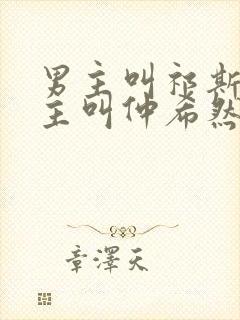 男主叫祁斯
主叫仲希然
章澤天